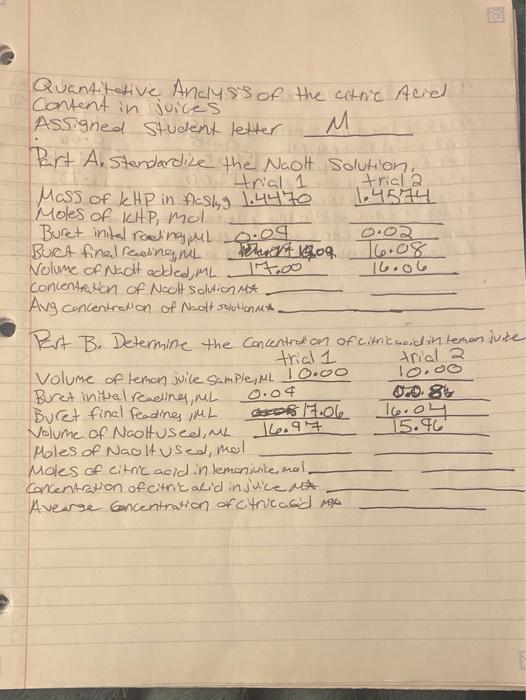 Quantitative Analysis of the citric Acid
Content in juices
Assigned student letter M
Part A. Standardize the NaOH Solution,
trial 1 trial 2
Mass of KHP in flask, g 1.4470 1.4574
Moles of KHP, mol
Buret initial reading, mL 0.09 0.02
Buret final reading, mL 17.09 16.08
Volume of NaOH added, mL 17.00 16.06
Concentration of NaOH solution M
Avg concentration of NaOH solution M
Part B. Determine the Concentration of citric acid in lemon juice
trial 1 trial 2
Volume of lemon juice sample, mL 10.00 10.00
Buret initial reading, mL 0.09
Buret final reading, mL 17.06 16.04
Volume of NaOH used, mL 16.97 15.96
Moles of NaOH used, mol
Moles of citric acid in lemon juice, mol
Concentration of citric acid in juice M
Avearge Concentration of citric acid